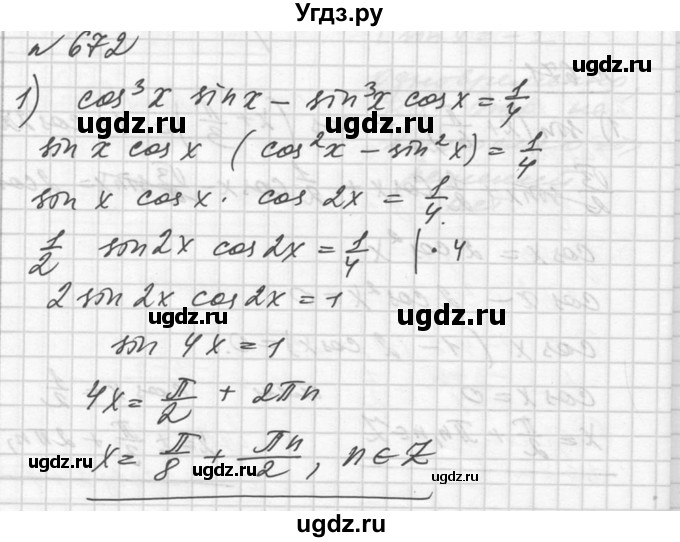 Угдз.ру
№ 672
1) cos³x sin x – sin³x cos x = 1/4
ugdz.ru ugdz.ru
sin x cos x (cos²x – sin²x) = 1/4
sin x cos x · cos 2x = 1/4.
ugdz.ru ugdz.ru
1/2 sin 2x cos 2x = 1/4 | · 4
2 sin 2x cos 2x = 1
ugdz.ru ugdz.ru
sin 4x = 1
4x = π/2 + 2πn
x = π/8 + πn/2, n ∈ Z
ugdz.ru ugdz.ru ugdz.ru
ugdz.ru